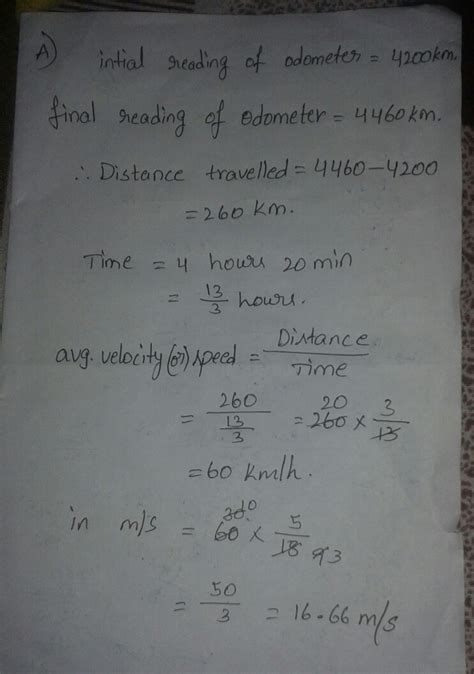 A) intial reading of odometer = 4200km.
final reading of odometer = 4460km.
∴ Distance travelled = 4460 – 4200
= 260 km.
Time = 4 hours 20 min
= 13/3 hours.
avg. velocity (or) speed = Distance/Time
= 260/(13/3) = 20 260 × 3/13
= 60 Km/h.
in m/s = 30 10 60 × 5/18 9 3
= 50/3 = 16.66 m/s